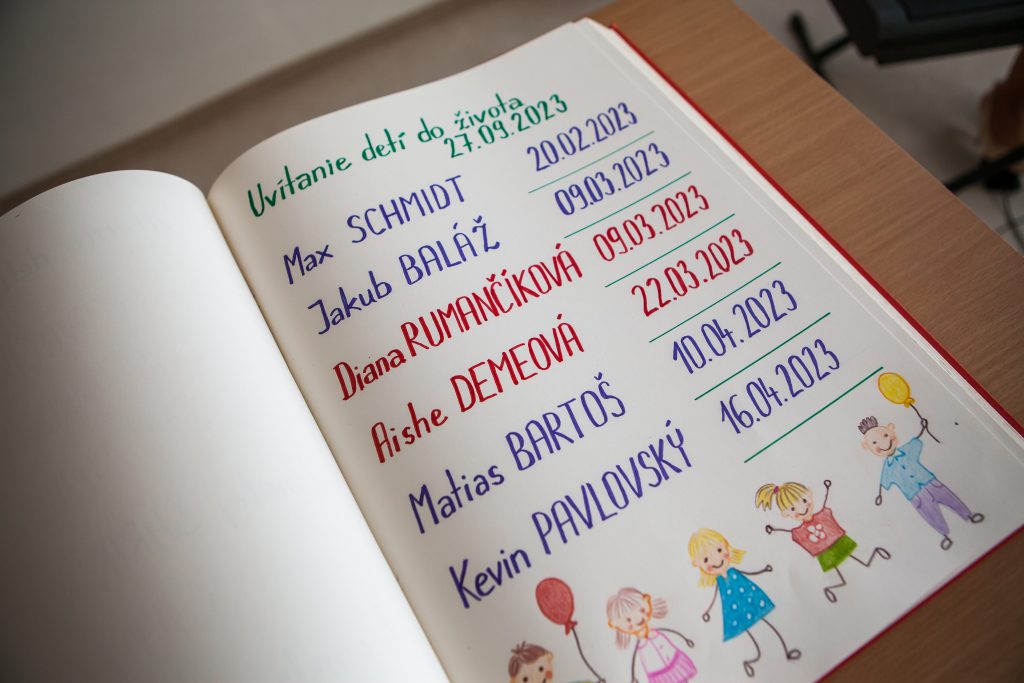 Uvítanie detí do života
27.09.2023
Max SCHMIDT 20.02.2023
Jakub BALÁŽ 09.03.2023
Diana RUMANČÍKOVÁ 09.03.2023
Aishe DEMEOVÁ 22.03.2023
Matias BARTOŠ 10.04.2023
Kevin PAVLOVSKÝ 16.04.2023